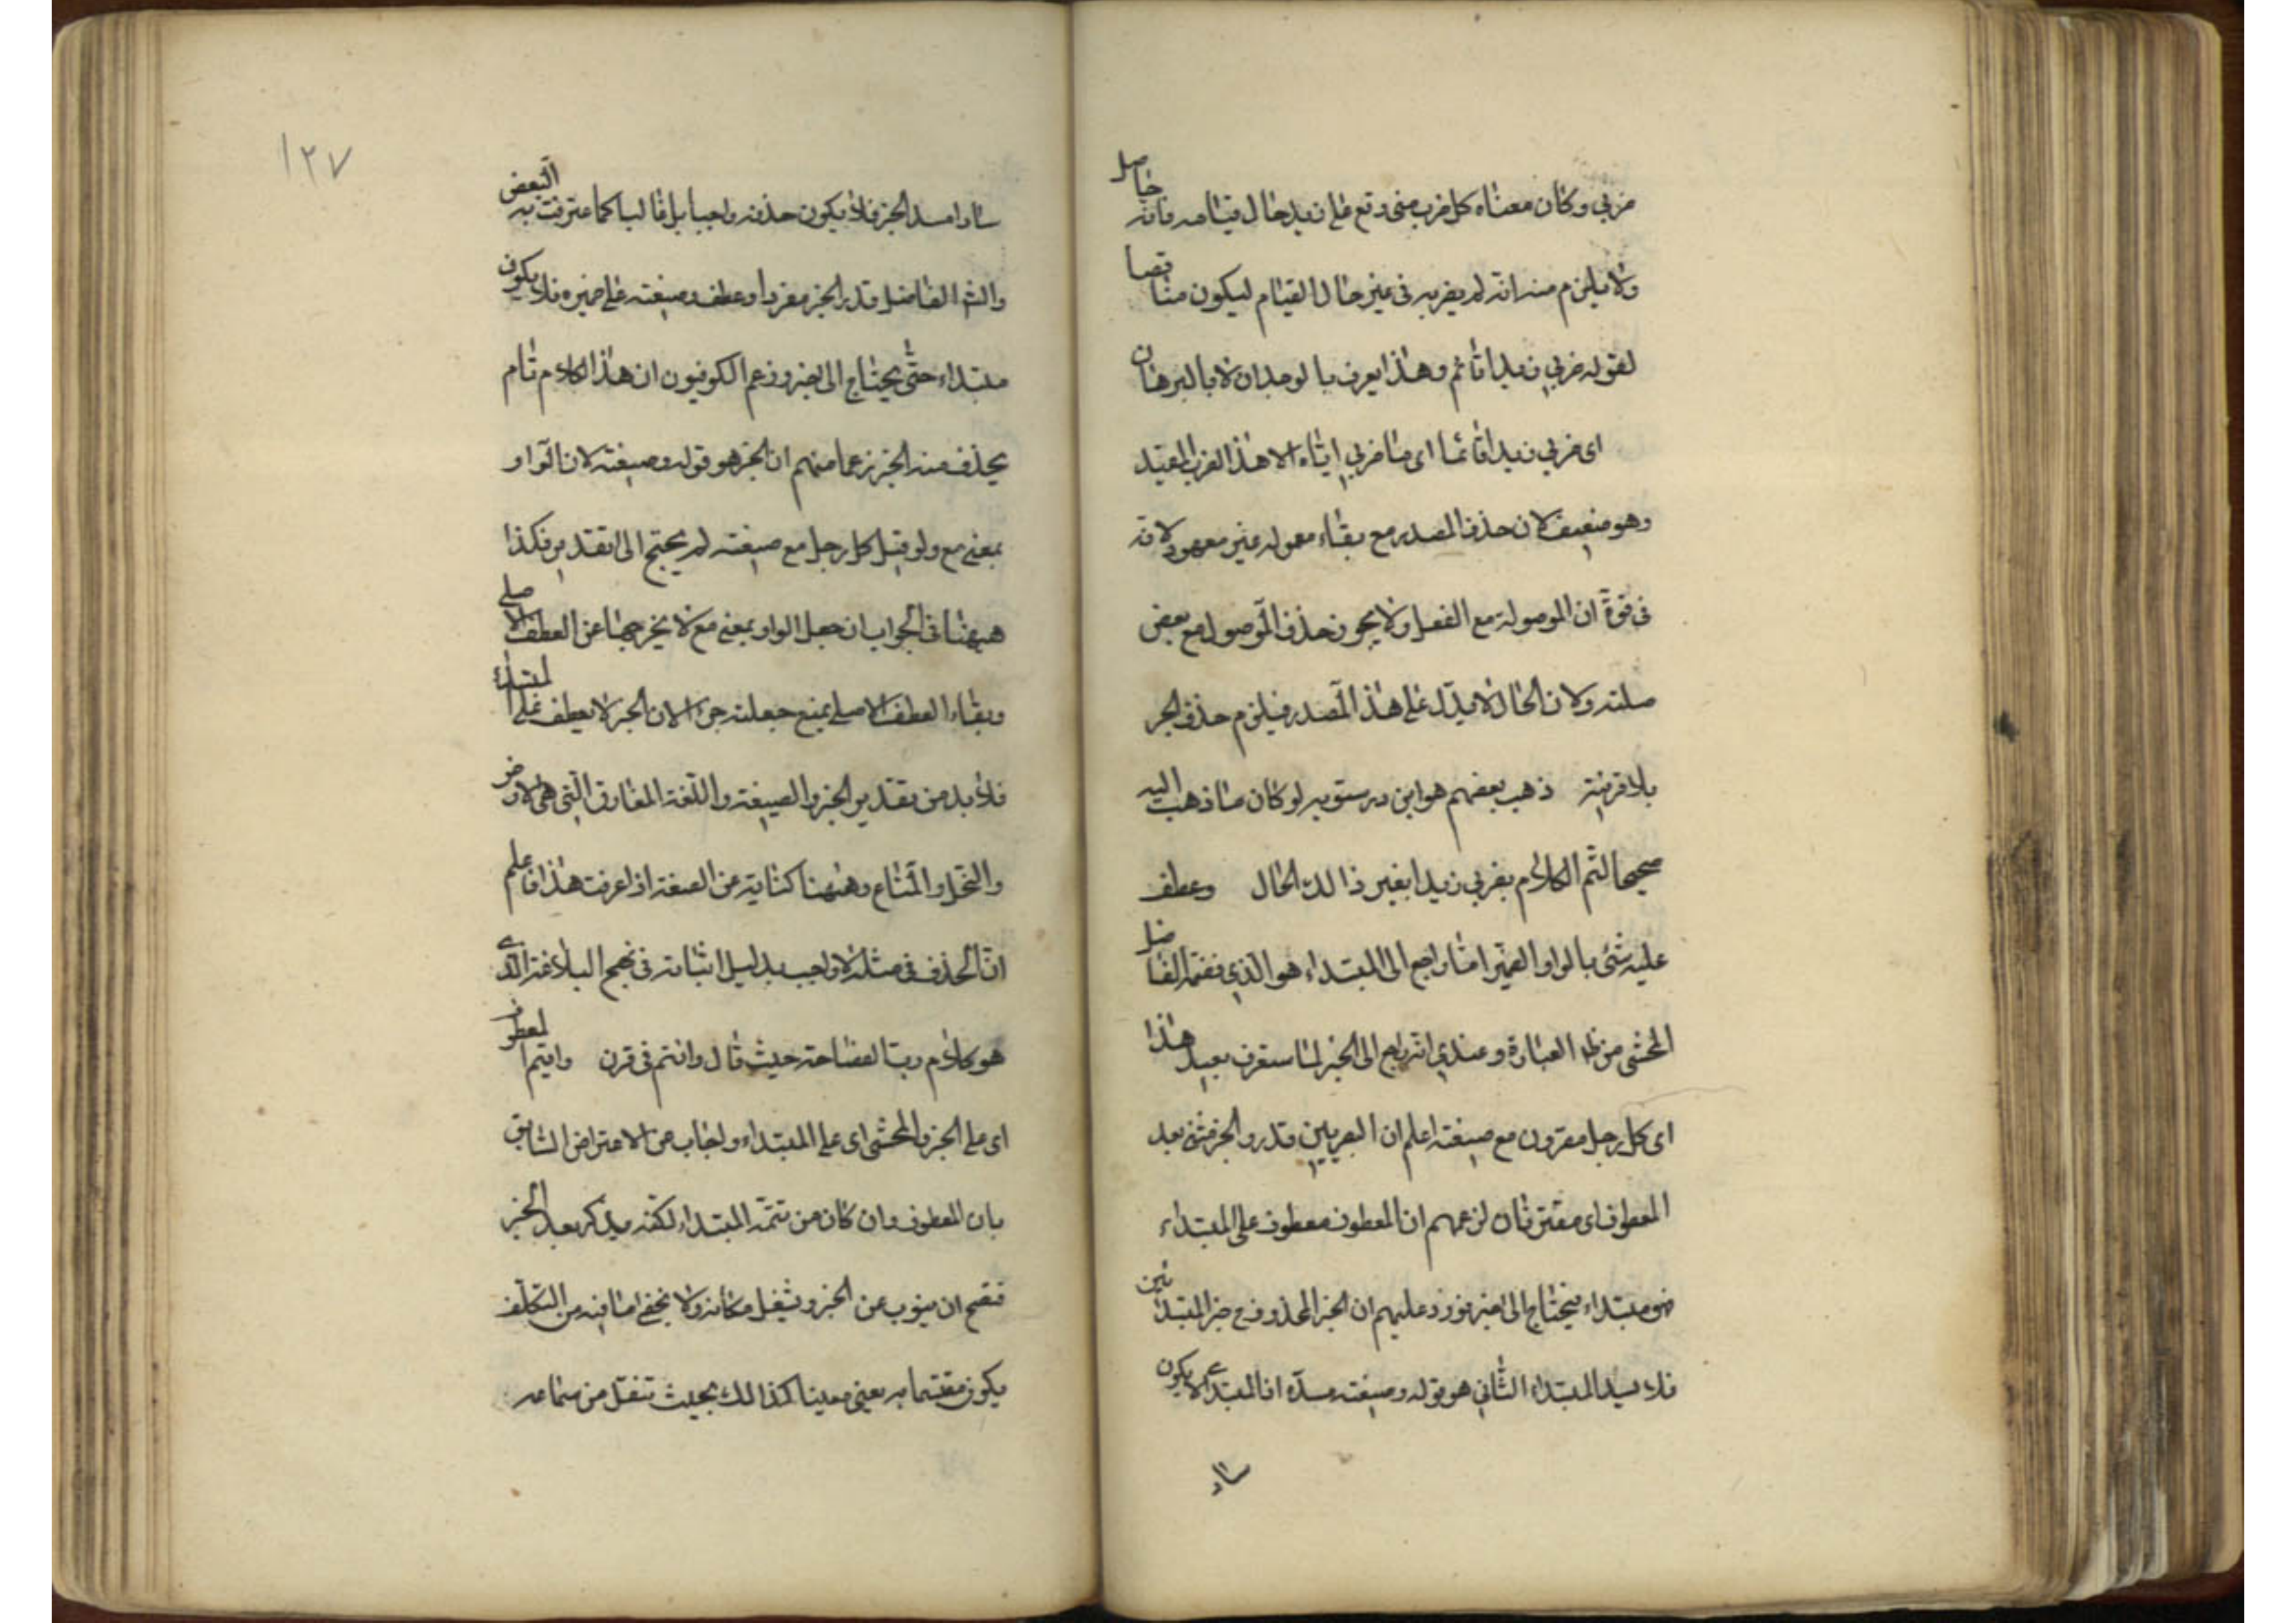 ضربي وكان معناه كل ضرب مني وقع على زيد حال قيامه فانه حاصل
ولا يلزم منه انه لم يضربه في غير حال القيام ليكون مناقضا
لقوله ضربي زيدا قائم وهذا يعرف بالوجدان لا بالبرهان
اى ضربي زيدا قائما اى ما ضربي اياه الا هذا الضرب المقيد
وهو ضعيف لان حذف المصدر مع بقاء معموله غير معهود لانه
في قوة ان الموصولة مع الفعل ولا يجوز حذف الموصول مع بعض
صلته ولان الحال لا يدل على هذا المصدر فيلزم حذف الخبر
بلا قرينة ذهب بعضهم هو ابن درستويه لو كان ما ذهب اليه
صحيحا لتم الكلام بضربي زيدا بغير ذالك الحال وعطف
عليه شئ بالواو الضمير اما راجع الى المبتداء هو الذي فهمه الفاضل
المحشى من ظ العبارة وعندي انه راجع الى الخبر لما ستعرف بعيد هذا
اى كل رجل مقرون مع ضيعته اعلم ان البصريين قدروا الخبر مثنى بعد
المعطوف اى مقترنان لزعمهم ان المعطوف معطوف على المبتداء
فهو مبتداء فيحتاج الى خبر فورد عليهم ان الخبر المحذوف ح خبر المبتدائين
فلا يسد المبتداء الثاني هو قوله وضيعته مسده اذ المبتدء لا يكون
ساد
١٢٧
سادا مسد الخبر فلا يكون حذفه واجبا بل غالبا كما اعترفت به البعض
والش الفاضل قدر الخبر مفردا وعطف وضيعته على ضميره فلا يكون
مبتداء حتى يحتاج الى خبر وزعم الكوفيون ان هذا الكلام تام
يحذف منه الخبر زعما منهم ان الخبر هو قوله وضيعته لان الواو
بمعنى مع ولو قيل كل رجل مع ضيعته لم يحتج الى تقدير فكذا
هيهنا في الجواب ان جعل الواو بمعنى مع لا يخرجها عن العطف الاصلي
وبقاء العطف الاصلي يمنع جعلته خبرا لان الخبر لا يعطف على المبتداء
فلا بد من تقدير الخبر والضيعة و اللغة العقار التي هي الارض
والنخل والمتاع وههنا كناية عن الصنعة اذا عرفت هذا فاعلم
ان الحذف في مثله لا واجب بدليل اثباته في نهج البلاغة الذي
هو كلام رب الفصاحة حيث قال وانتم في قرن واقيم المعطوف
اى على الخبر والمحشى اى على المبتداء واجاب عن الاعتراض السابق
بان المعطوف وان كان من تتمة المبتداء لكنه يذكر بعد الخبر
فصح ان ينوب عن الخبر و يشغل مكانه ولا يخفى ما فيه من التكلف
يكون مقتسما به يعني معينا كذالك بحيث تنقل من سماعه